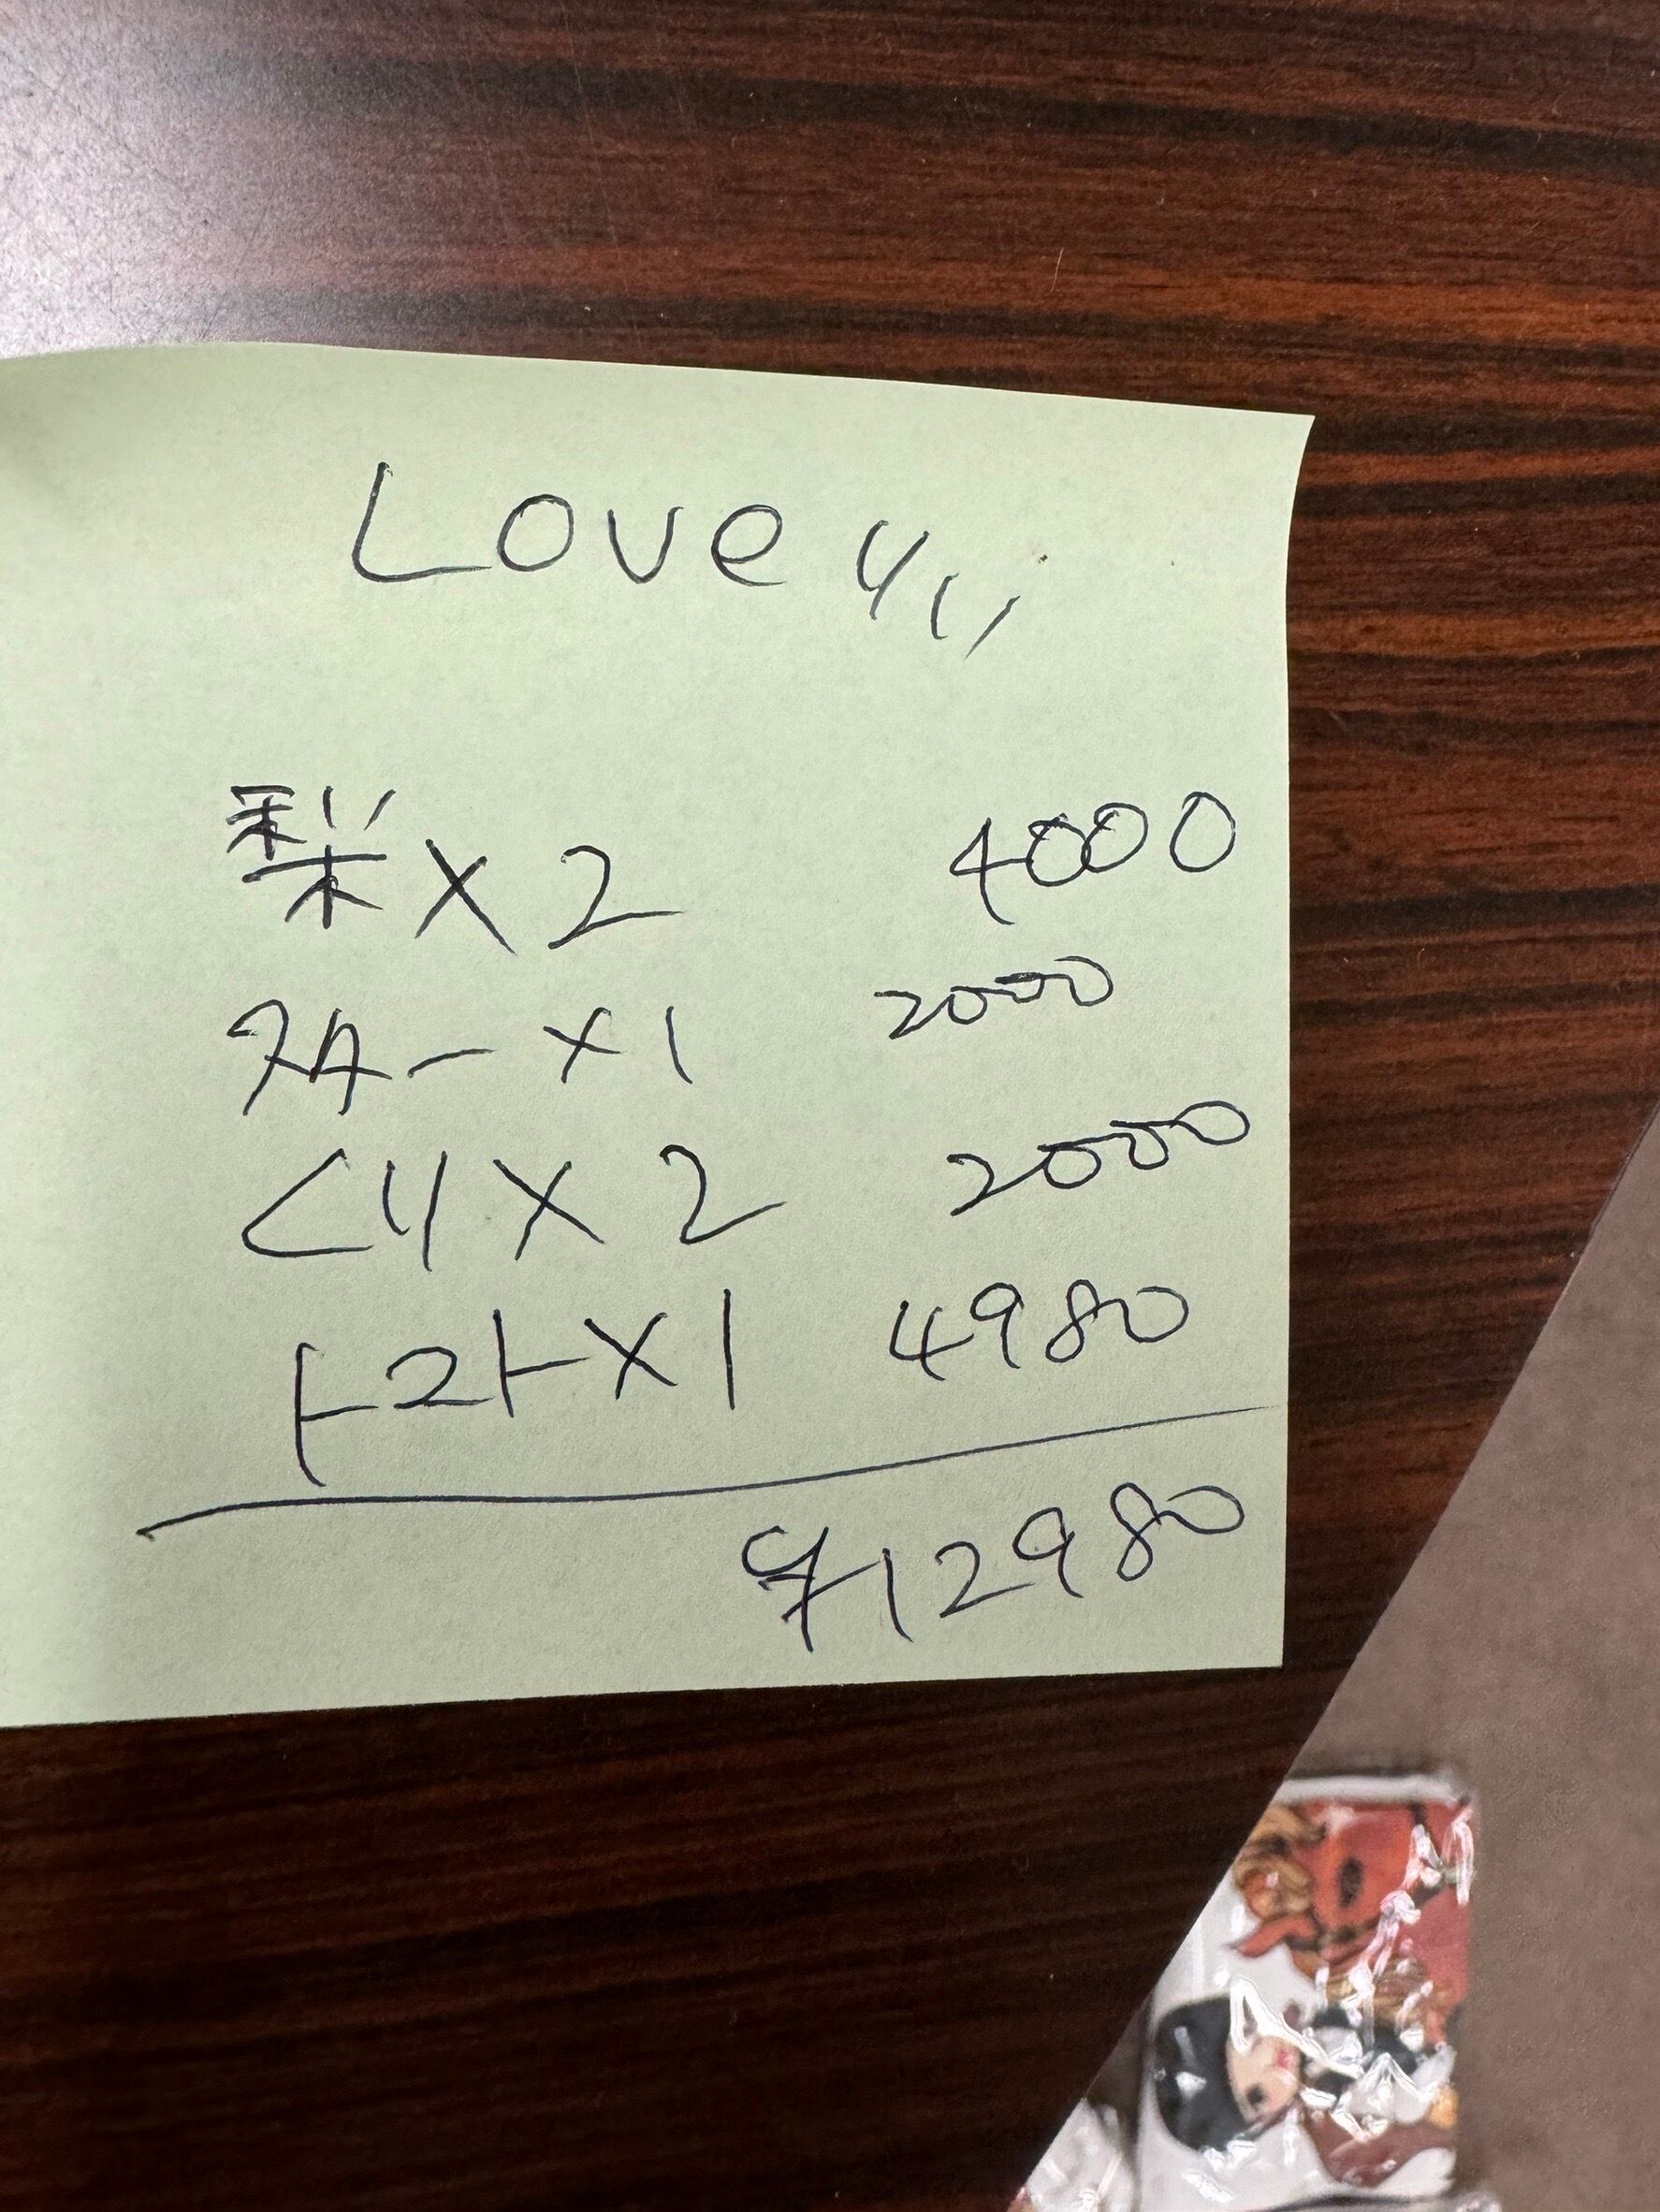 Love
梨×2 4000
スター×1 2000
くり×2 2000
トマト×1 4980
¥12980